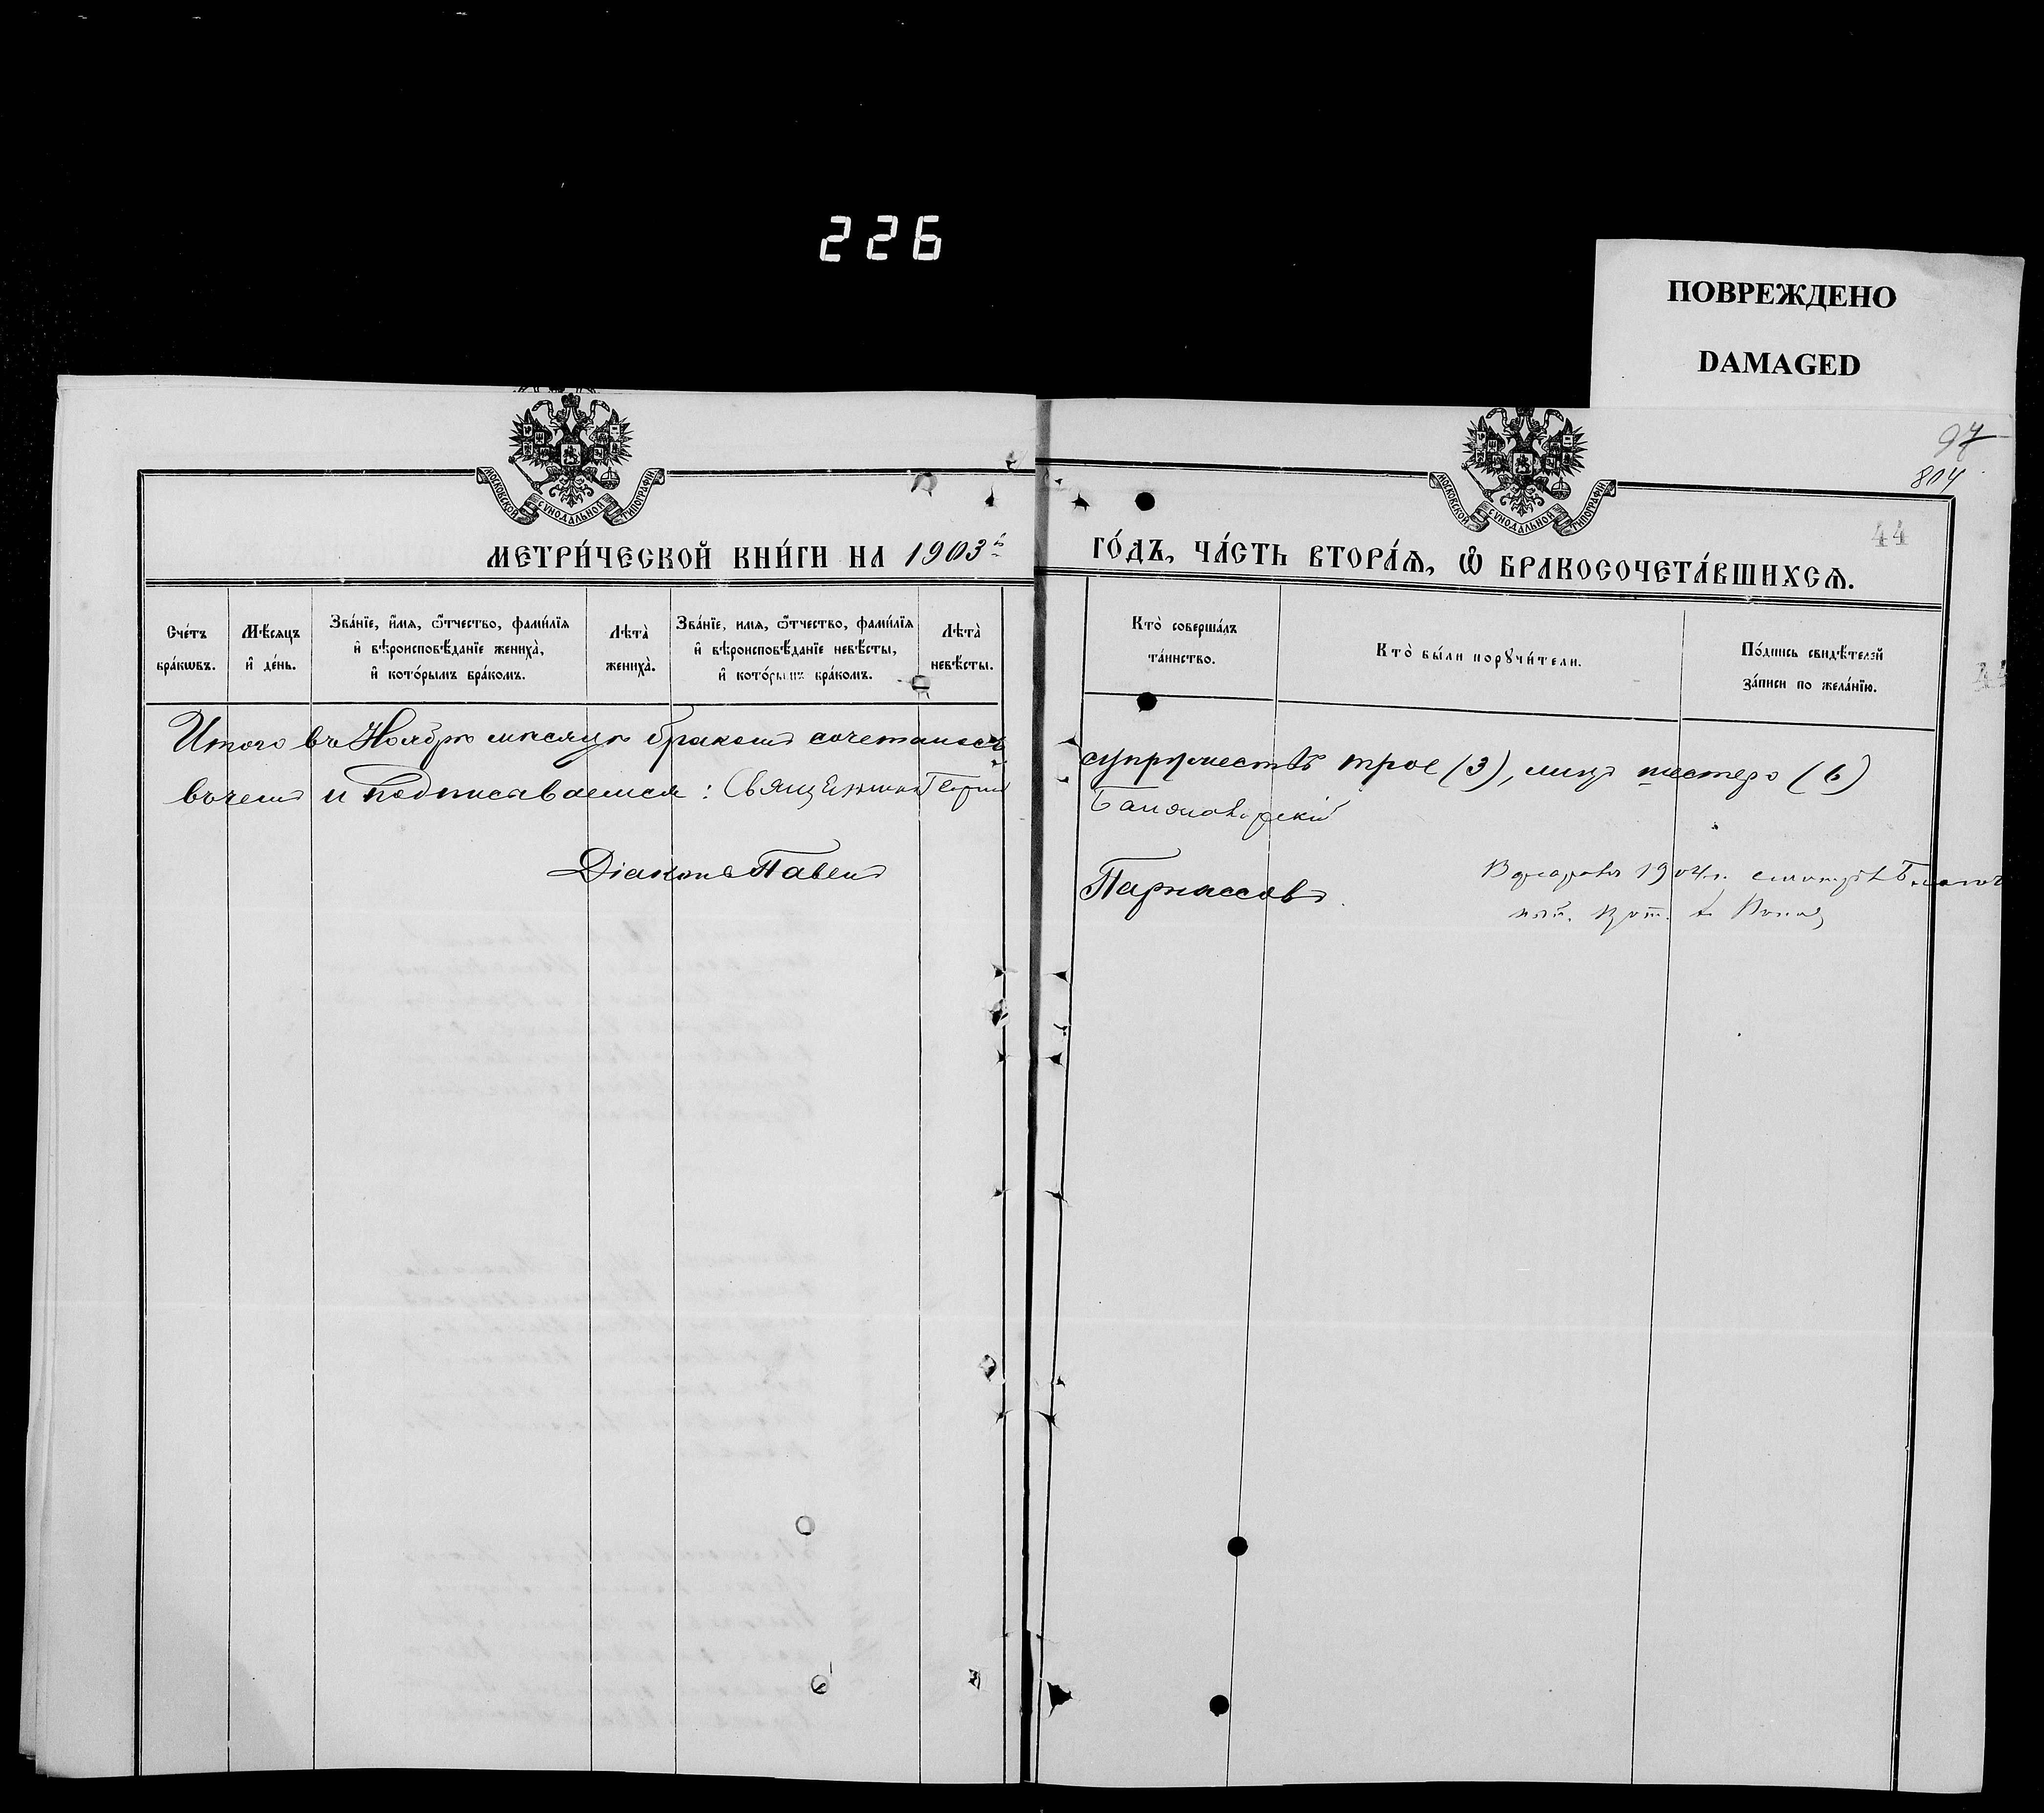 226
ПОВРЕЖДЕНО
DAMAGED
97
804
44
МОСКОВСКОЙ СѴНОДАЛЬНОЙ ТИПОГРАФІИ
МОСКОВСКОЙ СѴНОДАЛЬНОЙ ТИПОГРАФІИ
МЕТРИ́ЧЕСКОЙ КНИ́ГИ НА 1903й
ГО́ДЪ, ЧА́СТЬ ВТОРА́Ѧ, Ѡ҆ БРАКОСОЧЕТА́ВШИХСѦ.
Сче́тъ бра́кѡвъ.
Мѣ́сѧцъ и҆ де́нь.
Зва́нїе, и҆́мѧ, ѿтчество, фами́лїѧ и҆ вѣроисповѣ́данїе жениха̀, и҆ кото́рымъ бра́комъ.
Лѣта̀ жениха̀.
Зва́нїе, имѧ, ѿтчество, фами́лїѧ и҆ вѣроисповѣ́данїе невѣ́сты, и҆ кото́рымъ бра́комъ.
Лѣта̀ невѣ́сты.
Кто̀ соверша́лъ та́инство.
Кто̀ бы́ли порꙋчи́тели.
По́дпись свидѣ́телєй за́писи по жела́нїю.
Итого въ Ноябрѣ мѣсяцѣ бракомъ сочеталось
супружествъ трое (3), лицъ шестеро (6)
въ чемъ и подписываемся: Священникъ
Діаконъ Павелъ
Парнассовъ
1904 г.